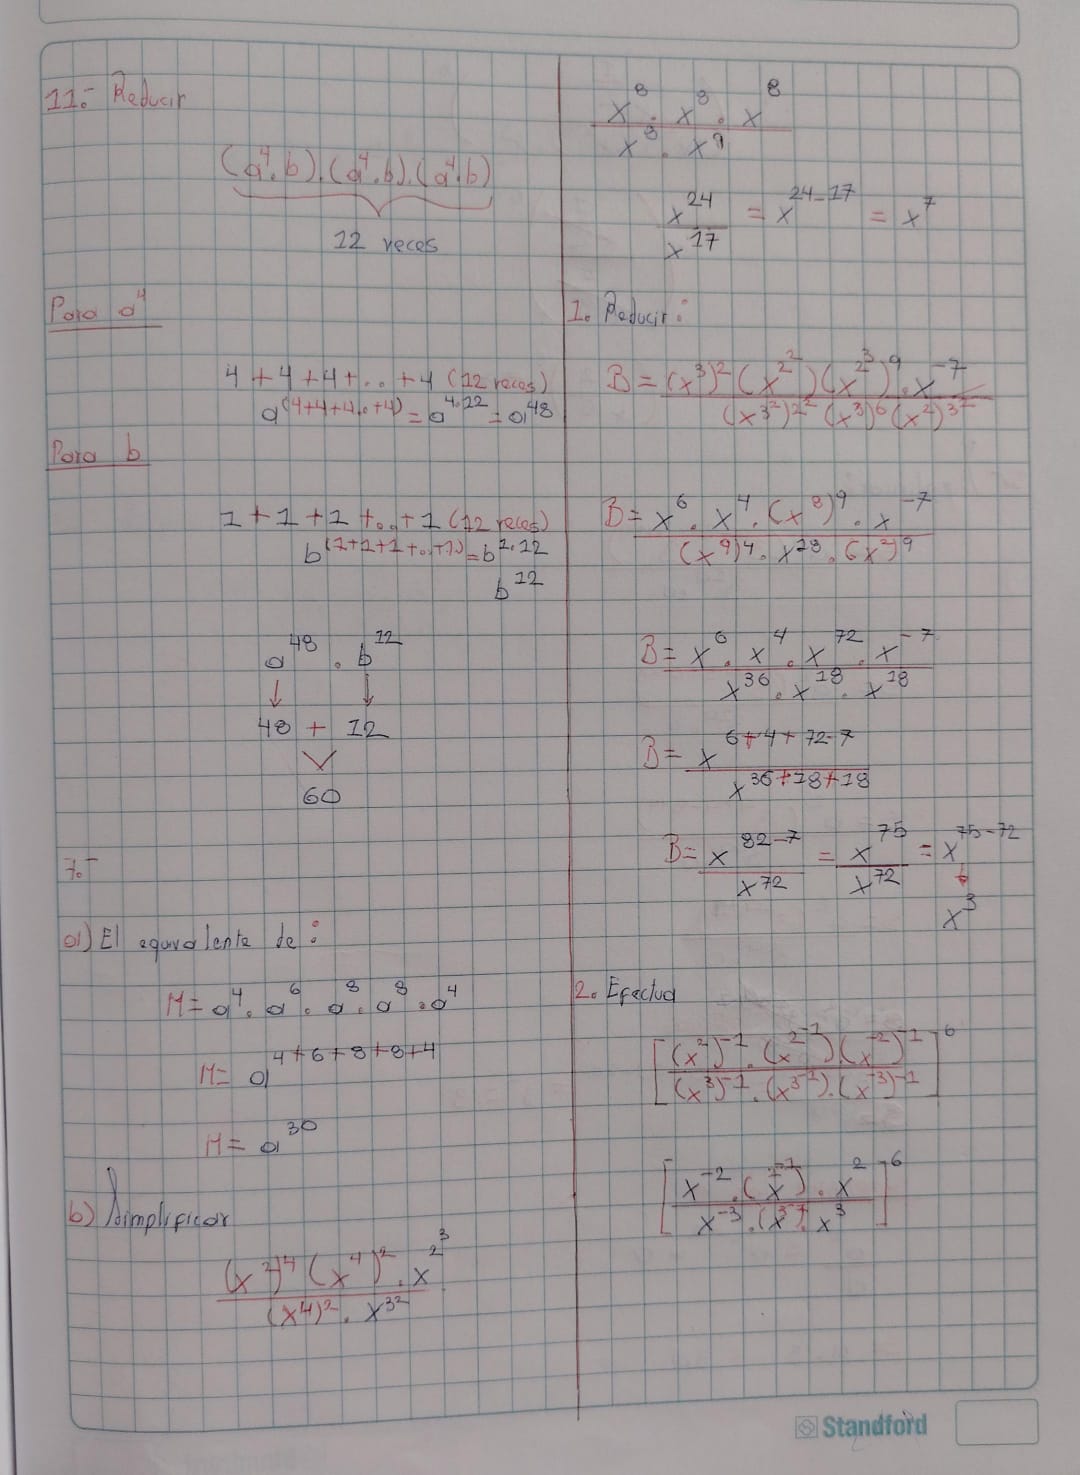 11.- Reducir
(a⁴.b).(a⁴.b).(a⁴.b)
12 veces
Para a⁴
4 + 4 + 4 + . . + 4 (12 veces)
a^(4+4+4..+4) = a^4.12 = a^48
Para b
1 + 1 + 1 + .. + 1 (12 veces)
b^(1+1+1+..+1) = b^1.12
b^12
a^48 . b^12
↓ ↓
48 + 12
60
7.-
a) El equivalente de :
M = a⁴ . a⁶ . a⁸ . a⁸ . a⁴
M = a^4+6+8+8+4
M = a^30
b) Simplificar
(x²)⁴ (x⁴)² . x^2^3
(x⁴)² . x^3^2
x⁸ . x⁸ . x⁸
x⁸ . x⁹
x^24 = x^24-17 = x^7
x^17
1. Reducir :
B = (x³)² (x^2^2) (x^2^3)^9 . x^-7
(x^3^2)^2^2 (x³)⁶ (x²)^3^2
B = x⁶ . x⁴ . (x⁸)⁹ . x^-7
(x⁹)⁴ . x^18 . (x²)⁹
B = x⁶ . x⁴ . x^72 . x^-7
x^36 . x^18 . x^18
B = x^6+4+72-7
x^36+18+18
B = x^82-7 = x^75 = x^75-72
x^72 x^72
x³
2. Efectua
[(x²)^-1 . (x^2^-1) (x^-2)^-1]^6
[(x³)^-1 . (x^3^-1) . (x^-3)^-1]
[x^-2 . (x^2^-1) . x²]^6
x^-3 . (x^3^-1) x³
Standford